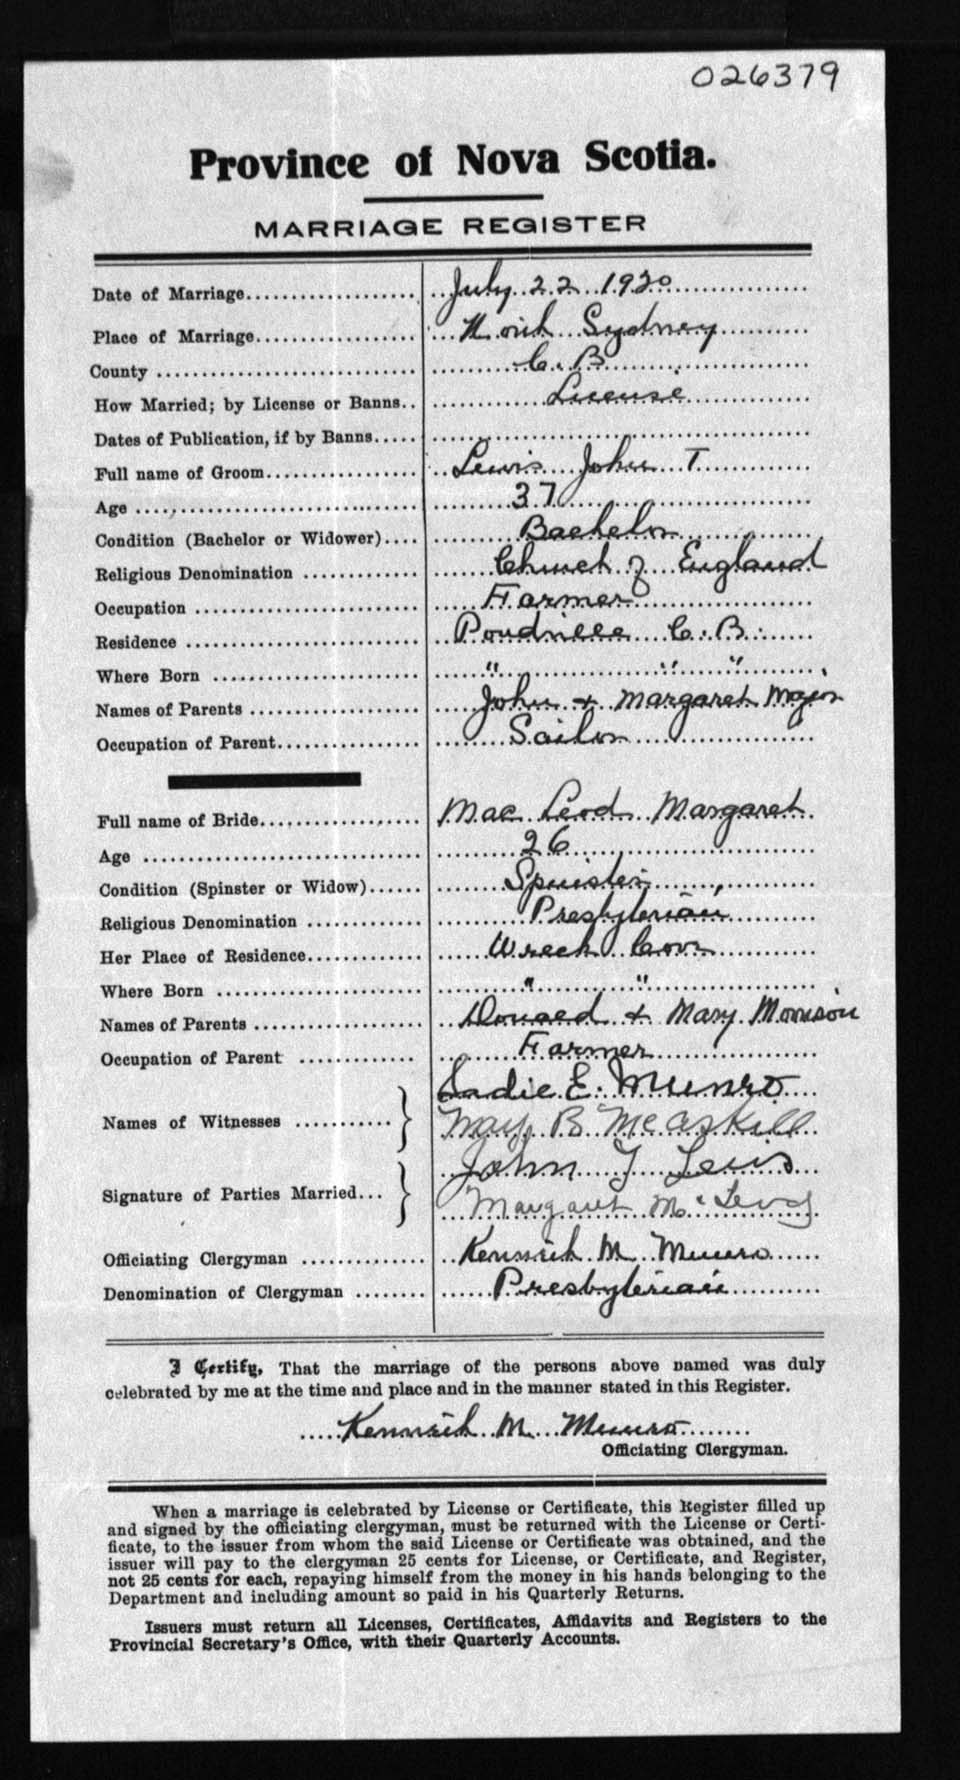 026379
Province of Nova Scotia.
MARRIAGE REGISTER
Date of Marriage.................... July 22 1920
Place of Marriage.................. North Sydney
County ............................. C. B.
How Married; by License or Banns.. License
Dates of Publication, if by Banns.....
Full name of Groom.................. Lewis John T
Age ............................... 37
Condition (Bachelor or Widower).... Bachelor
Religious Denomination ............. Church of England
Occupation ......................... Farmer
Residence .......................... C. B.
Where Born ........................ " " "
Names of Parents ................... John + Margaret Major
Occupation of Parent................ Sailor
Full name of Bride.................. Mac Leod Margaret
Age ............................... 26
Condition (Spinster or Widow)...... Spinster
Religious Denomination ............. Presbyterian
Her Place of Residence............. Wreck Cove
Where Born ........................ " "
Names of Parents ................... Donald + Mary Morrison
Occupation of Parent ............. Farmer
Names of Witnesses ........... } Sadie E. Munro
May B McAskill
Signature of Parties Married... } John T Leis
Margaret McLeod
Officiating Clergyman .............. Kenneth M Munro
Denomination of Clergyman ........ Presbyterian
I Certify, That the marriage of the persons above named was duly
celebrated by me at the time and place and in the manner stated in this Register.
Kenneth M. Munro
Officiating Clergyman.
When a marriage is celebrated by License or Certificate, this Register filled up
and signed by the officiating clergyman, must be returned with the License or Certi-
ficate, to the issuer from whom the said License or Certificate was obtained, and the
issuer will pay to the clergyman 25 cents for License, or Certificate, and Register,
not 25 cents for each, repaying himself from the money in his hands belonging to the
Department and including amount so paid in his Quarterly Returns.
Issuers must return all Licenses, Certificates, Affidavits and Registers to the
Provincial Secretary's Office, with their Quarterly Accounts.